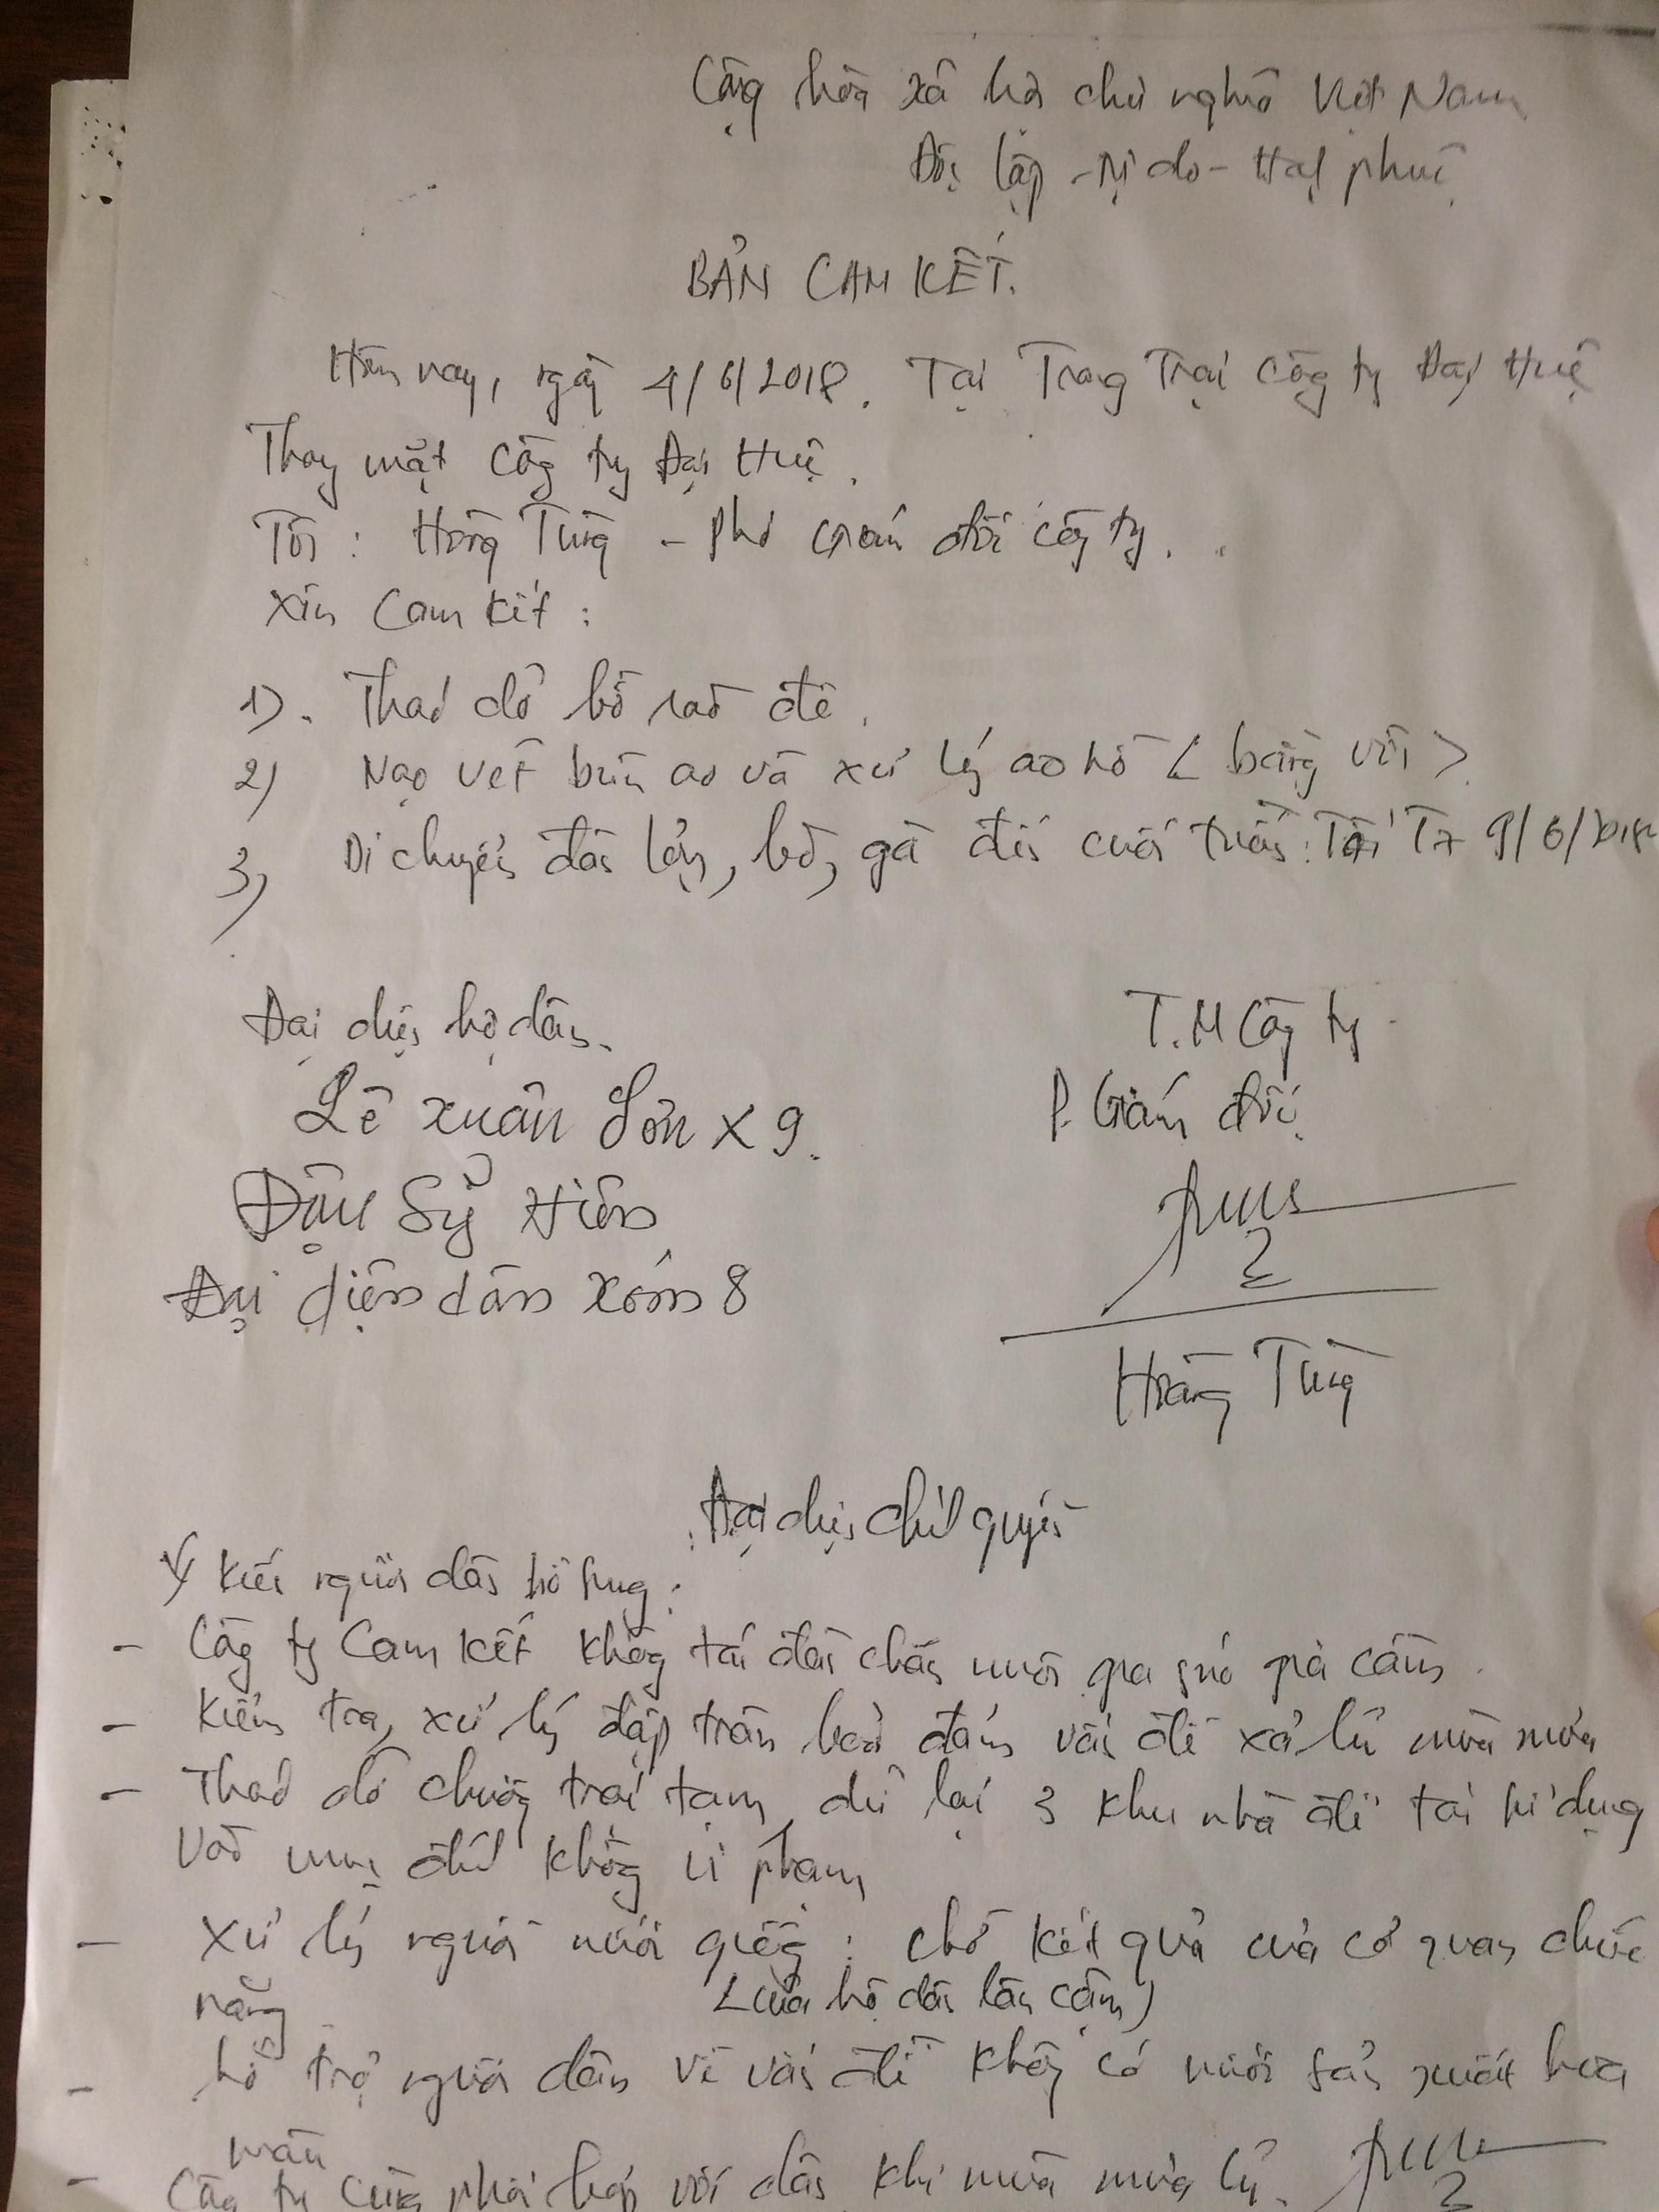 Cộng hòa xã hội chủ nghĩa Việt Nam
Độc lập - Tự do - Hạnh phúc
BẢN CAM KẾT.
Hôm nay, ngày 4/6/2018. Tại Trang Trại Công ty Đại Huệ
Thay mặt Công ty Đại Huệ.
Tôi: Hoàng Tùng - Phó giám đốc công ty.
Xin Cam kết:
1). Tháo dỡ bờ rào đê.
2) Nạo vét bùn ao và xử lý ao hồ < bằng vôi >.
3) Di chuyển đàn lợn, bò, gà đến cuối tuần: Tới T7 9/6/2018
Đại diện hộ dân.
T.M Công ty
Lê Xuân Sơn X9.
P. Giám đốc
Đậu Sỹ Hiền
Đại diện dân xóm 8
Hoàng Tùng
Đại diện chính quyền
Ý kiến người dân bổ sung:
- Công ty Cam kết không tái đàn chăn nuôi gia súc gia cầm.
- Kiểm tra, xử lý đập tràn bảo đảm vấn đề xả lũ mùa mưa
- Tháo dỡ chuồng trại tạm, để lại 3 khu nhà để tái sử dụng
vào mục đích không vi phạm
- Xử lý nguồn nước giếng: chờ kết quả của cơ quan chức
năng
<của hộ dân lân cận)
- hỗ trợ người dân về vấn đề không có nước sản xuất hoa
màu
- Công ty cùng phối hợp với dân khi mùa mưa lũ.